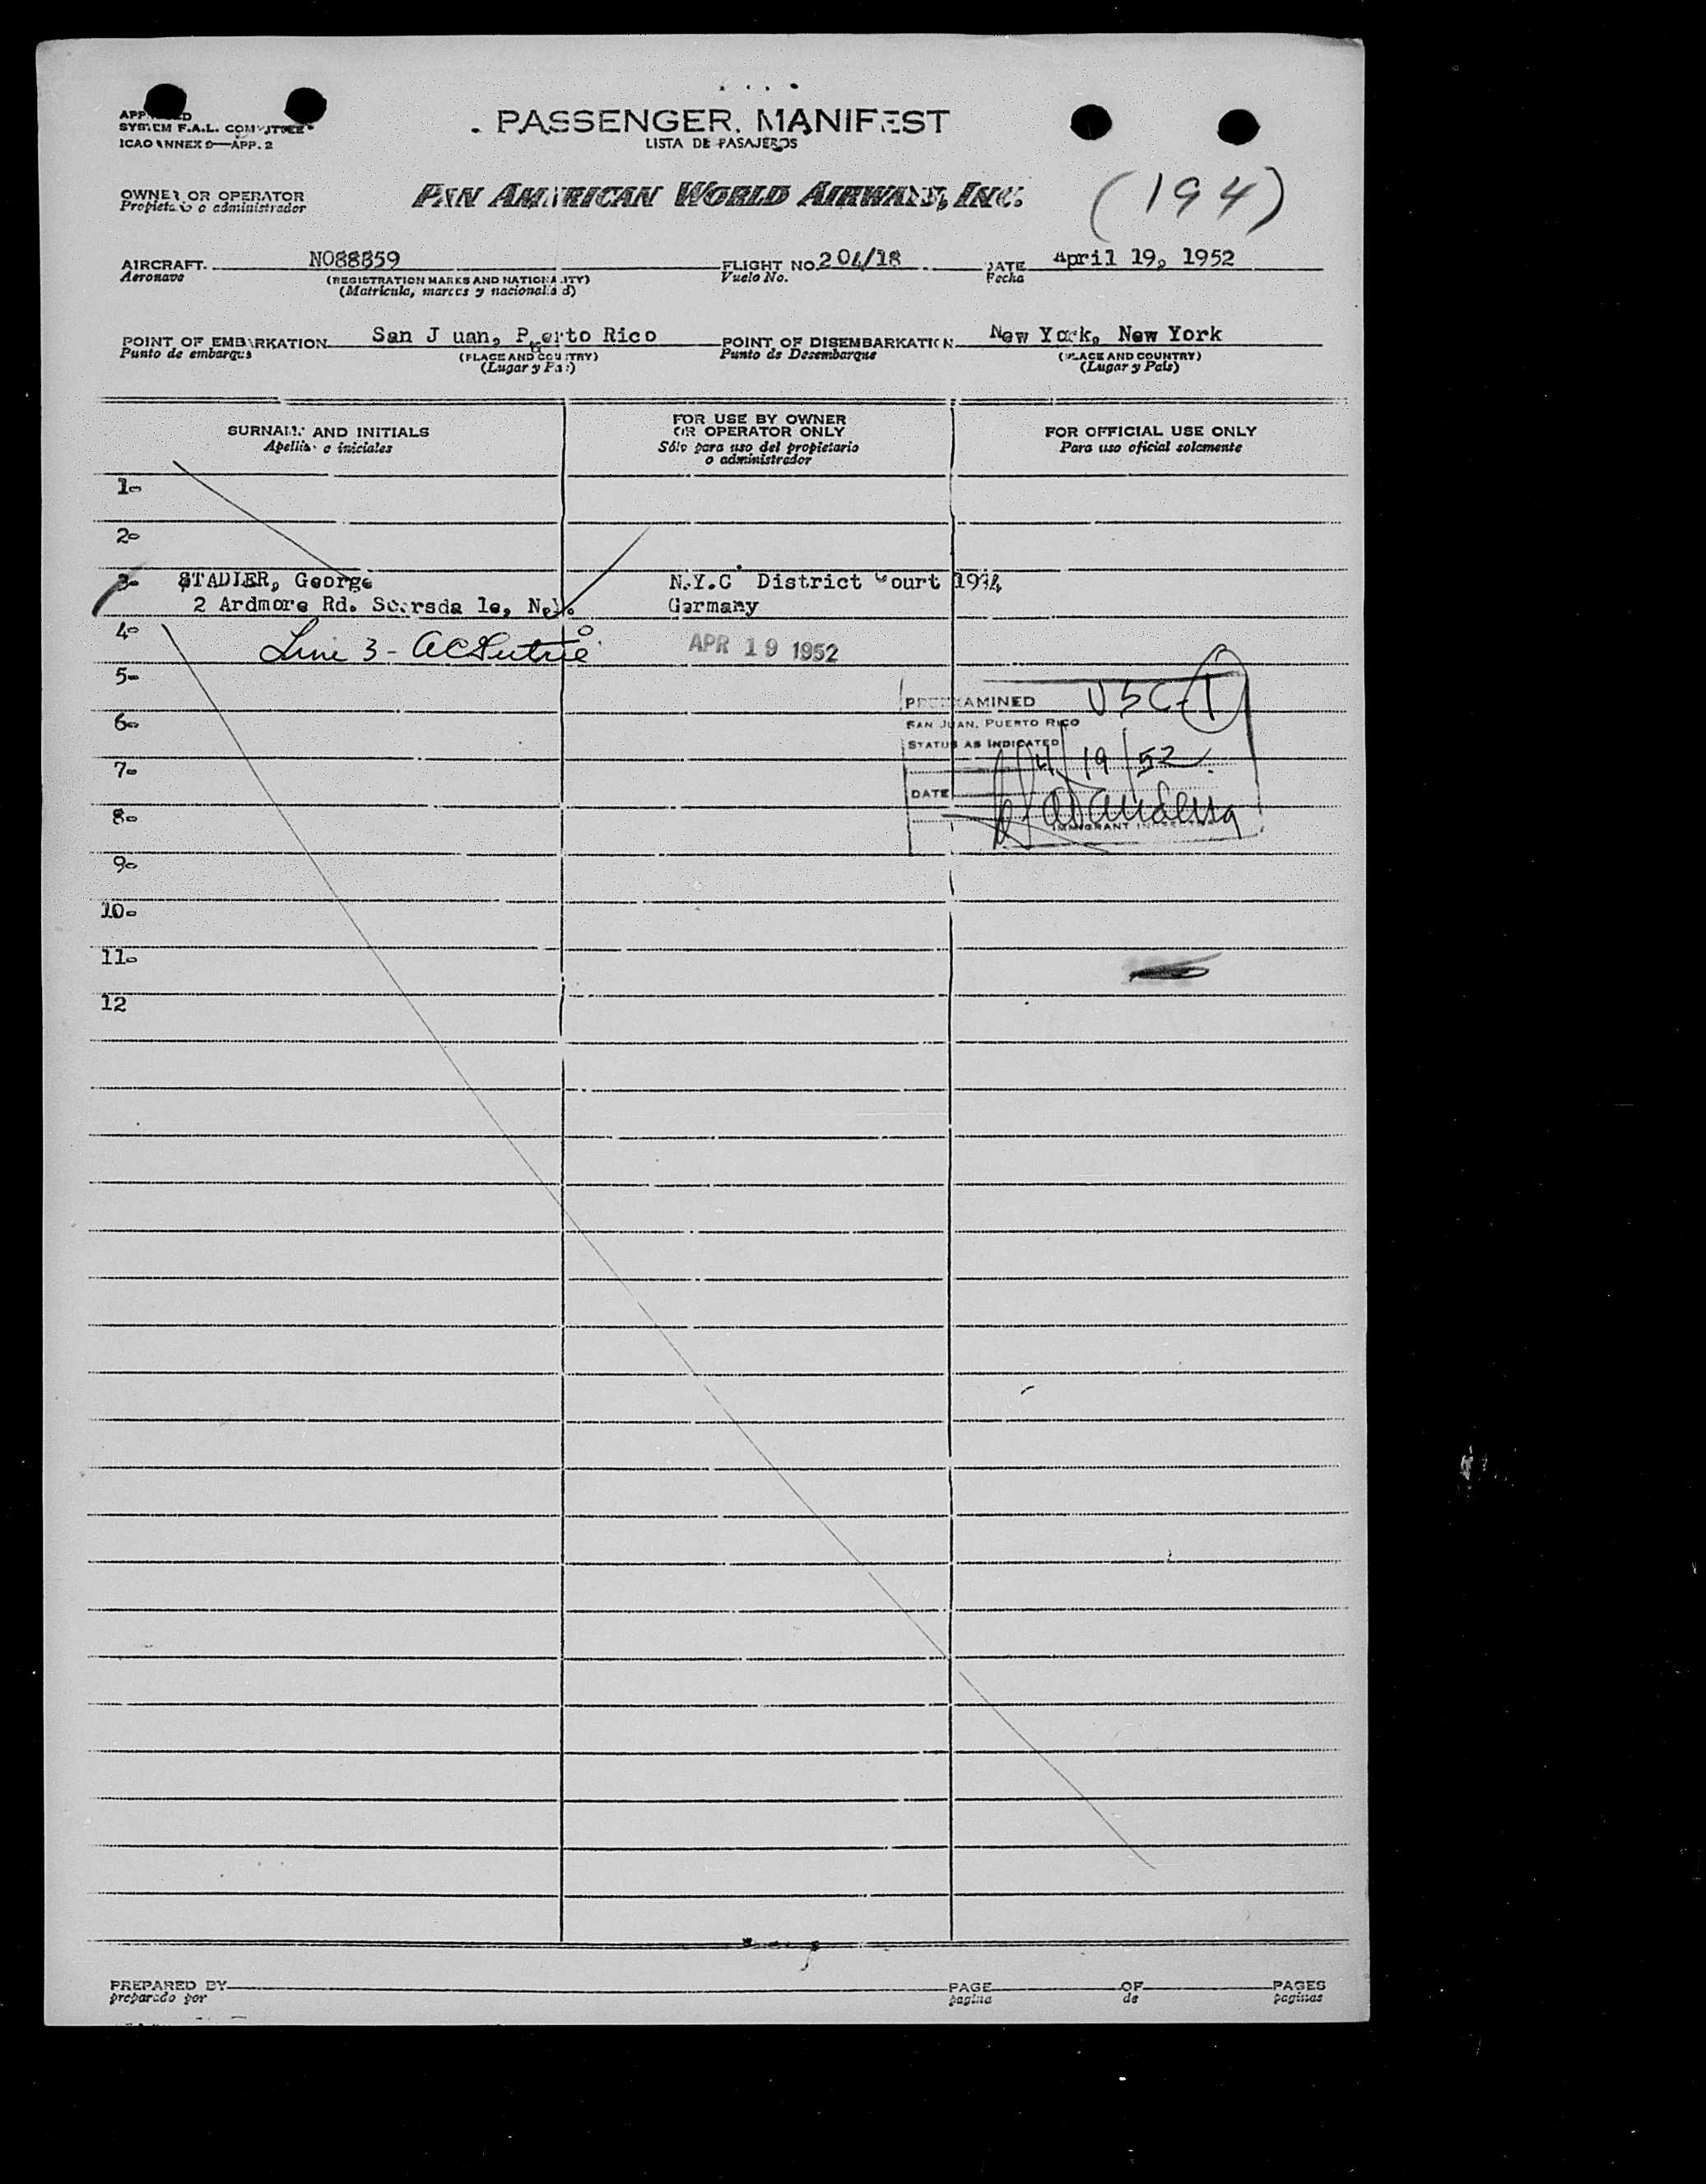 APPROVED
SYSTEM F.A.L. COMMITTEE
ICAO ANNEX 9—APP. 2
PASSENGER MANIFEST
LISTA DE PASAJEROS
OWNER OR OPERATOR
Propietario o administrador
PAN AMERICAN WORLD AIRWAYS, INC.
(194)
AIRCRAFT N088859
Aeronave
(REGISTRATION MARKS AND NATIONALITY)
(Matrícula, marcas y nacionalidad)
FLIGHT NO. 204/18
Vuelo No.
DATE April 19, 1952
Fecha
POINT OF EMBARKATION San J uan, Puerto Rico
Punto de embarque
(PLACE AND COUNTRY)
(Lugar y País)
POINT OF DISEMBARKATION New York, New York
Punto de Desembarque
(PLACE AND COUNTRY)
(Lugar y País)
SURNAME AND INITIALS
Apellido e iniciales
FOR USE BY OWNER
OR OPERATOR ONLY
Sólo para uso del propietario
o administrador
FOR OFFICIAL USE ONLY
Para uso oficial solamente
1-
2-
3- STADLER, George N.Y.C District Court
2 Ardmore Rd. Scarsda le, N.Y. Germany
4-
Line 3 -
APR 19 1952
5-
PREEXAMINED USC-1
SAN JUAN, PUERTO RICO
6-
STATUS AS INDICATED
4/19/52
7-
DATE
8-
IMMIGRANT INSPECTOR
9-
10-
11-
12
PREPARED BY
preparado por
PAGE OF PAGES
pagina de paginas